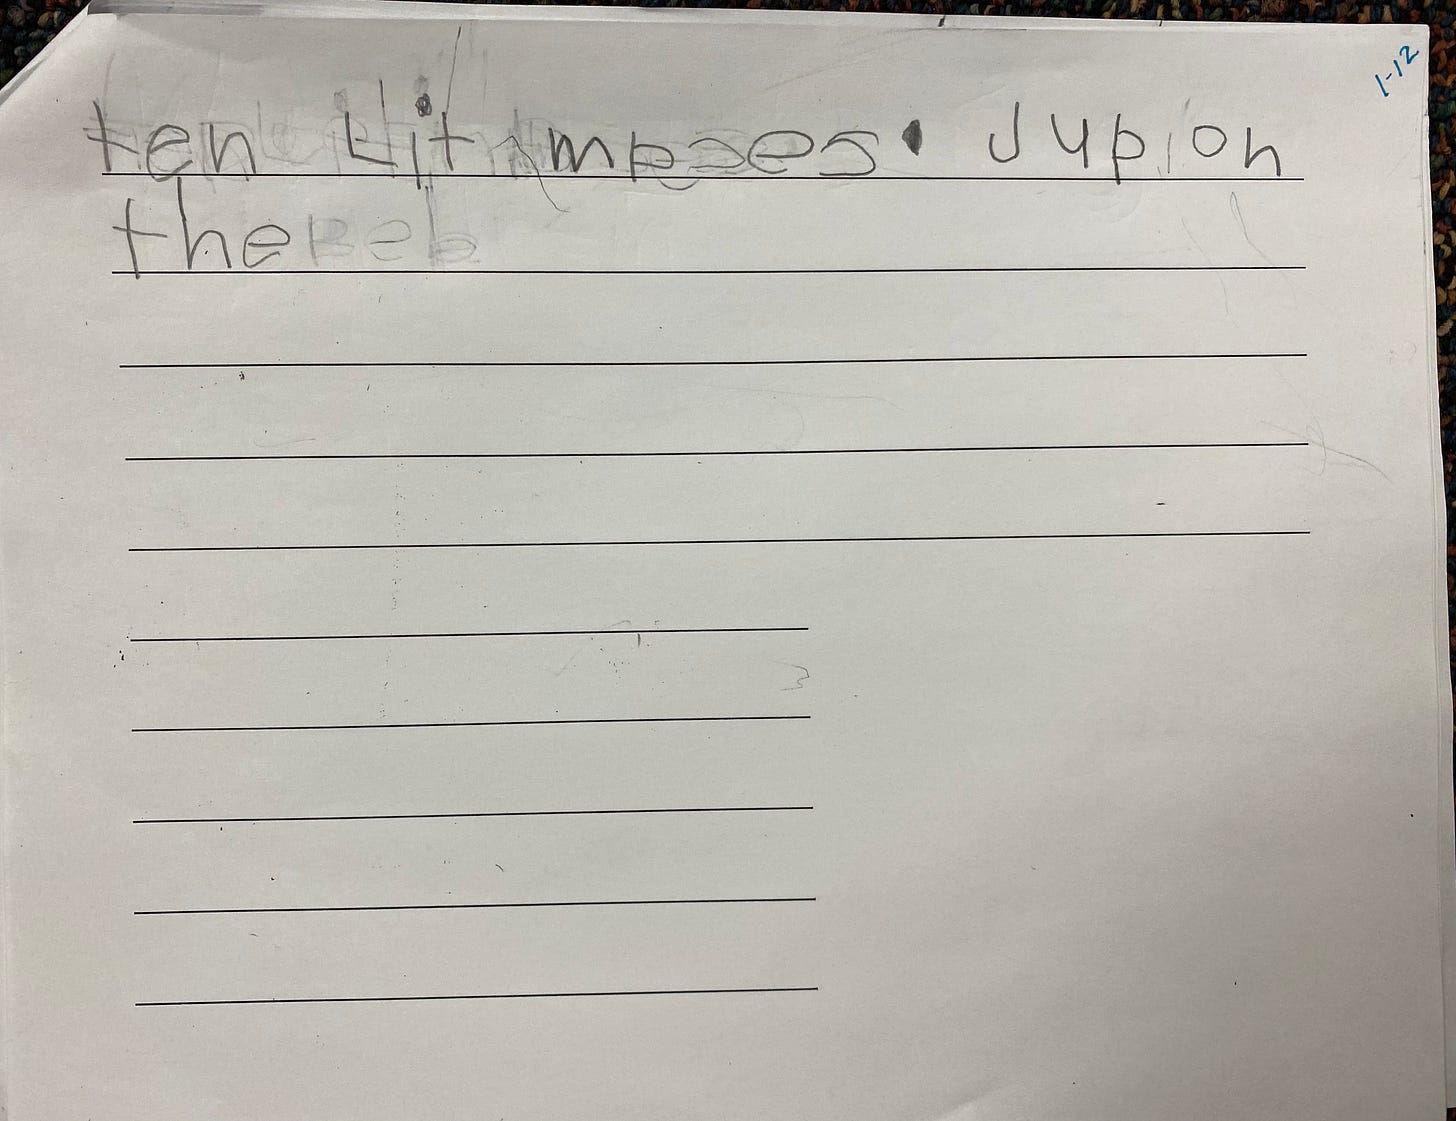 1-12
ten Lit mpses. Jyp on
the Beb